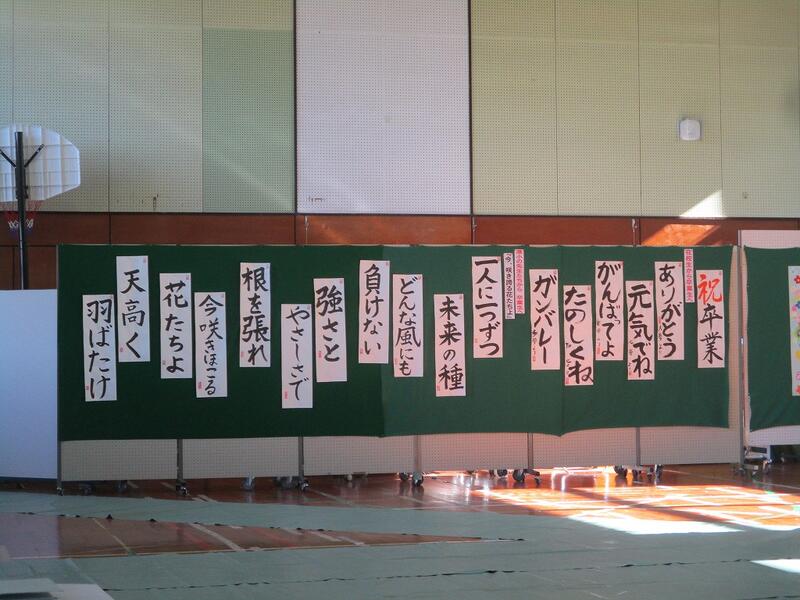 祝卒業
在校生から卒業生へ
ありがとう
元気でね
がんばってよ
たのしくね
ガンバレー
「今、咲き誇る花たちよ」
一人に一つずつ
未来の種
どんな風にも
負けない
強さと
やさしさで
根を張れ
今咲きほこる
花たちよ
天高く
羽ばたけ